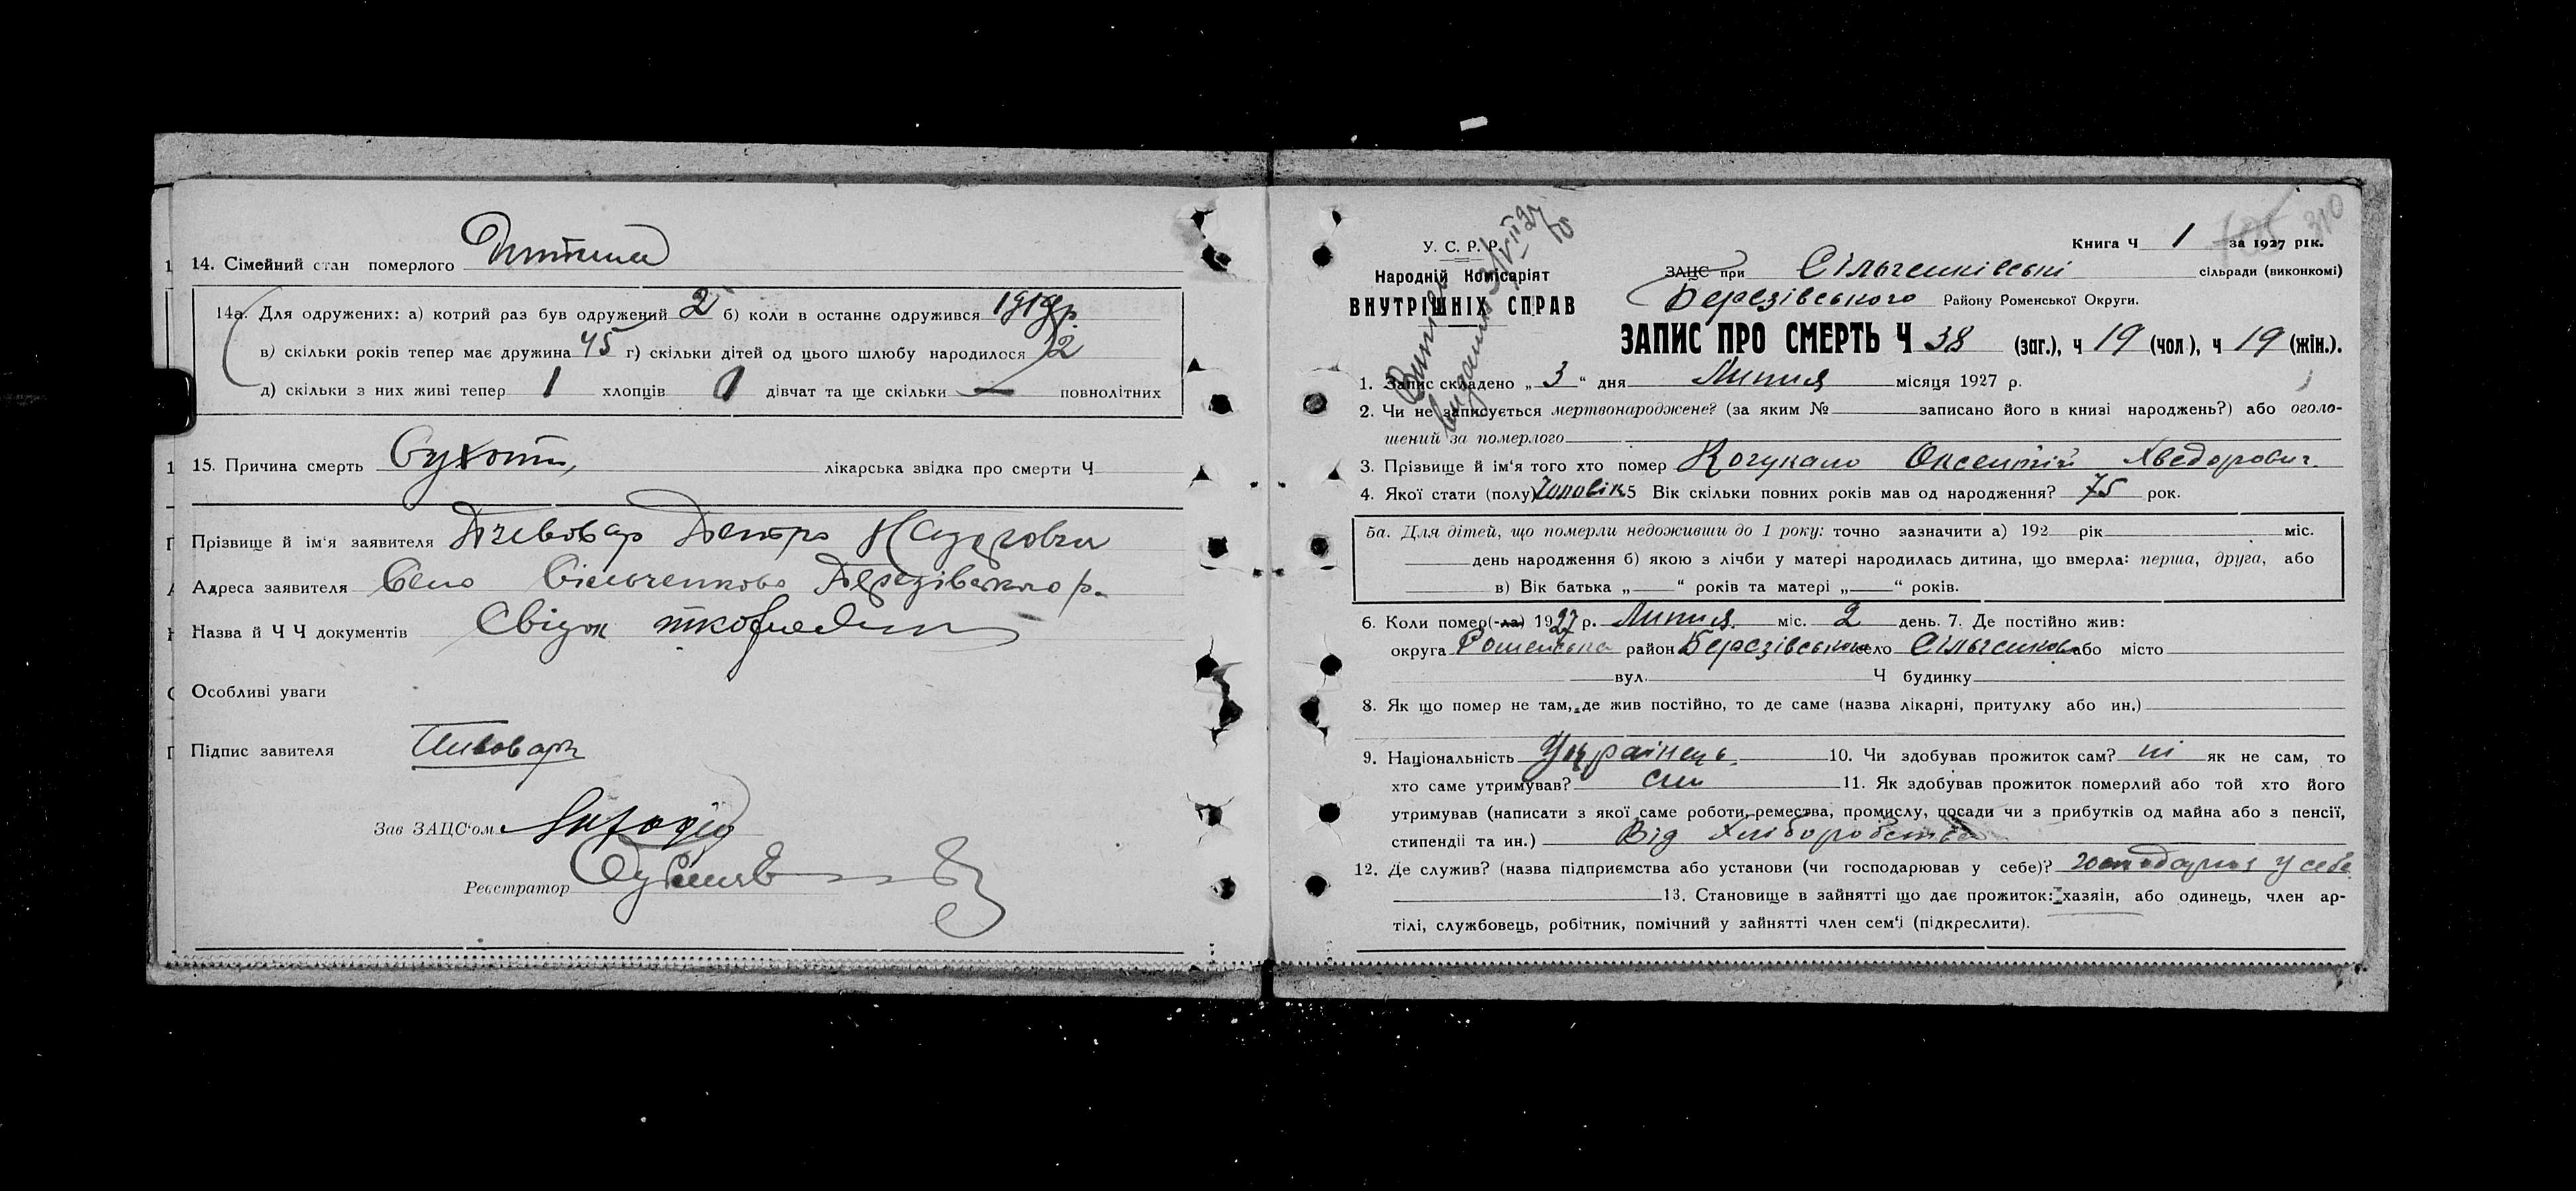 14. Сімейний стан померлого Дитина
14а. Для одружених: а) котрий раз був одружений 2 б) коли в останнє одружився 1919р.
в) скільки років тепер має дружина 45 г) скільки дітей од цього шлюбу народилося 2
д) скільки з них живі тепер 1 хлопців 0 дівчат та ще скільки — повнолітних
15. Причина смерть Сухоти, лікарська звідка про смерти Ч
Прізвище й ім'я заявителя Пивовар Петро
Адреса заявителя Село Сільченково Березівського р.
Назва й Ч Ч документів Свідок
Особливі уваги
Підпис завителя Пивоварь
Зав ЗАЦС'ом
Реєстратор
У. С. Р. Р.
Народній Комісаріят
ВНУТРІШНІХ СПРАВ
310
Книга Ч 1 за 1927 рік.
ЗАЦС при Сільченківські сільради (виконкомі)
Березівського Району Роменської Округи.
ЗАПИС ПРО СМЕРТЬ Ч 38 (заг.), ч 19 (чол), ч 19 (жін.).
1. Запис складено „ 3 “ дня Липня місяця 1927 р.
2. Чи не записується мертвонароджене? (за яким № записано його в книзі народжень?) або оголо-
шений за померлого
3. Прізвище й ім'я того хто помер Кочукало Оксентій Хведорович
4. Якої стати (полу) Чоловік 5 Вік скільки повних років мав од народження? 75 рок.
5а. Для дітей, що померли недоживши до 1 року: точно зазначити а) 192 рік міс.
день народження б) якою з лічби у матері народилась дитина, що вмерла: перша, друга, або
в) Вік батька „ “ років та матері „ “ років.
6. Коли помер(-ла) 1927 р. Липня міс. 2 день. 7. Де постійно жив:
округа Роменська район Березівського село Сільченкове або місто
вул. Ч будинку
8. Як що помер не там, де жив постійно, то де саме (назва лікарні, притулку або ин.)
9. Національність Українець 10. Чи здобував прожиток сам? ні як не сам, то
хто саме утримував? син 11. Як здобував прожиток померлий або той хто його
утримував (написати з якої саме роботи, ремества, промислу, посади чи з прибутків од майна або з пенсії,
стипендії та ин.) Від Хліборобства
12. Де служив? (назва підприємства або установи (чи господарював у себе)? господарював у себе
13. Становище в зайнятті що дає прожиток: хазяін, або одинець, член ар-
тілі, службовець, робітник, помічний у зайнятті член сем'ї (підкреслити).